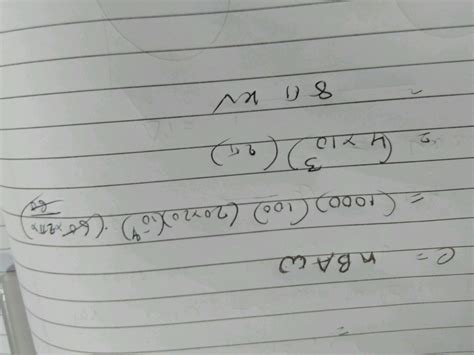 e = nBAω
= (1000) (100) (20×20) (10⁻⁴) · (60×2π× / 60)
= (4×10³) (2π)
= 8π kV